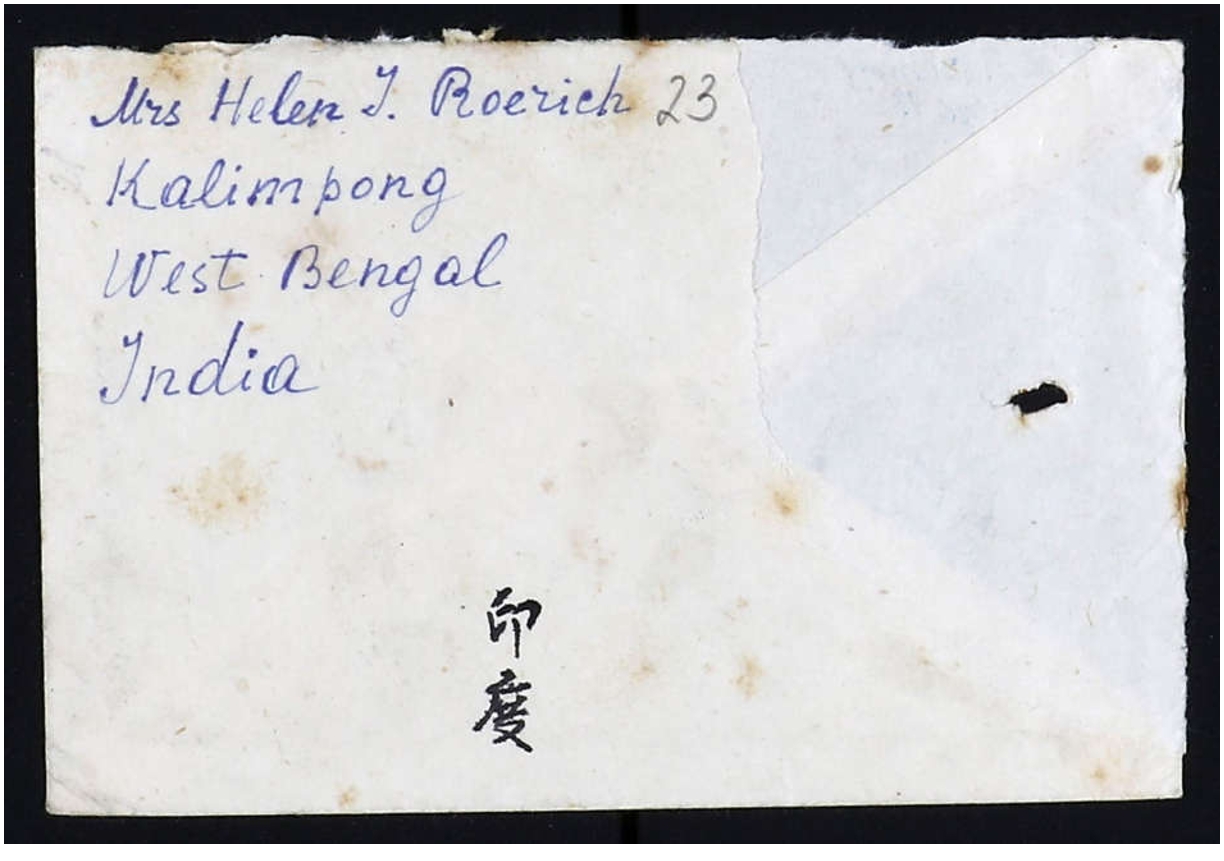 Mrs Helen I. Roerich 23
Kalimpong
West Bengal
India
印度